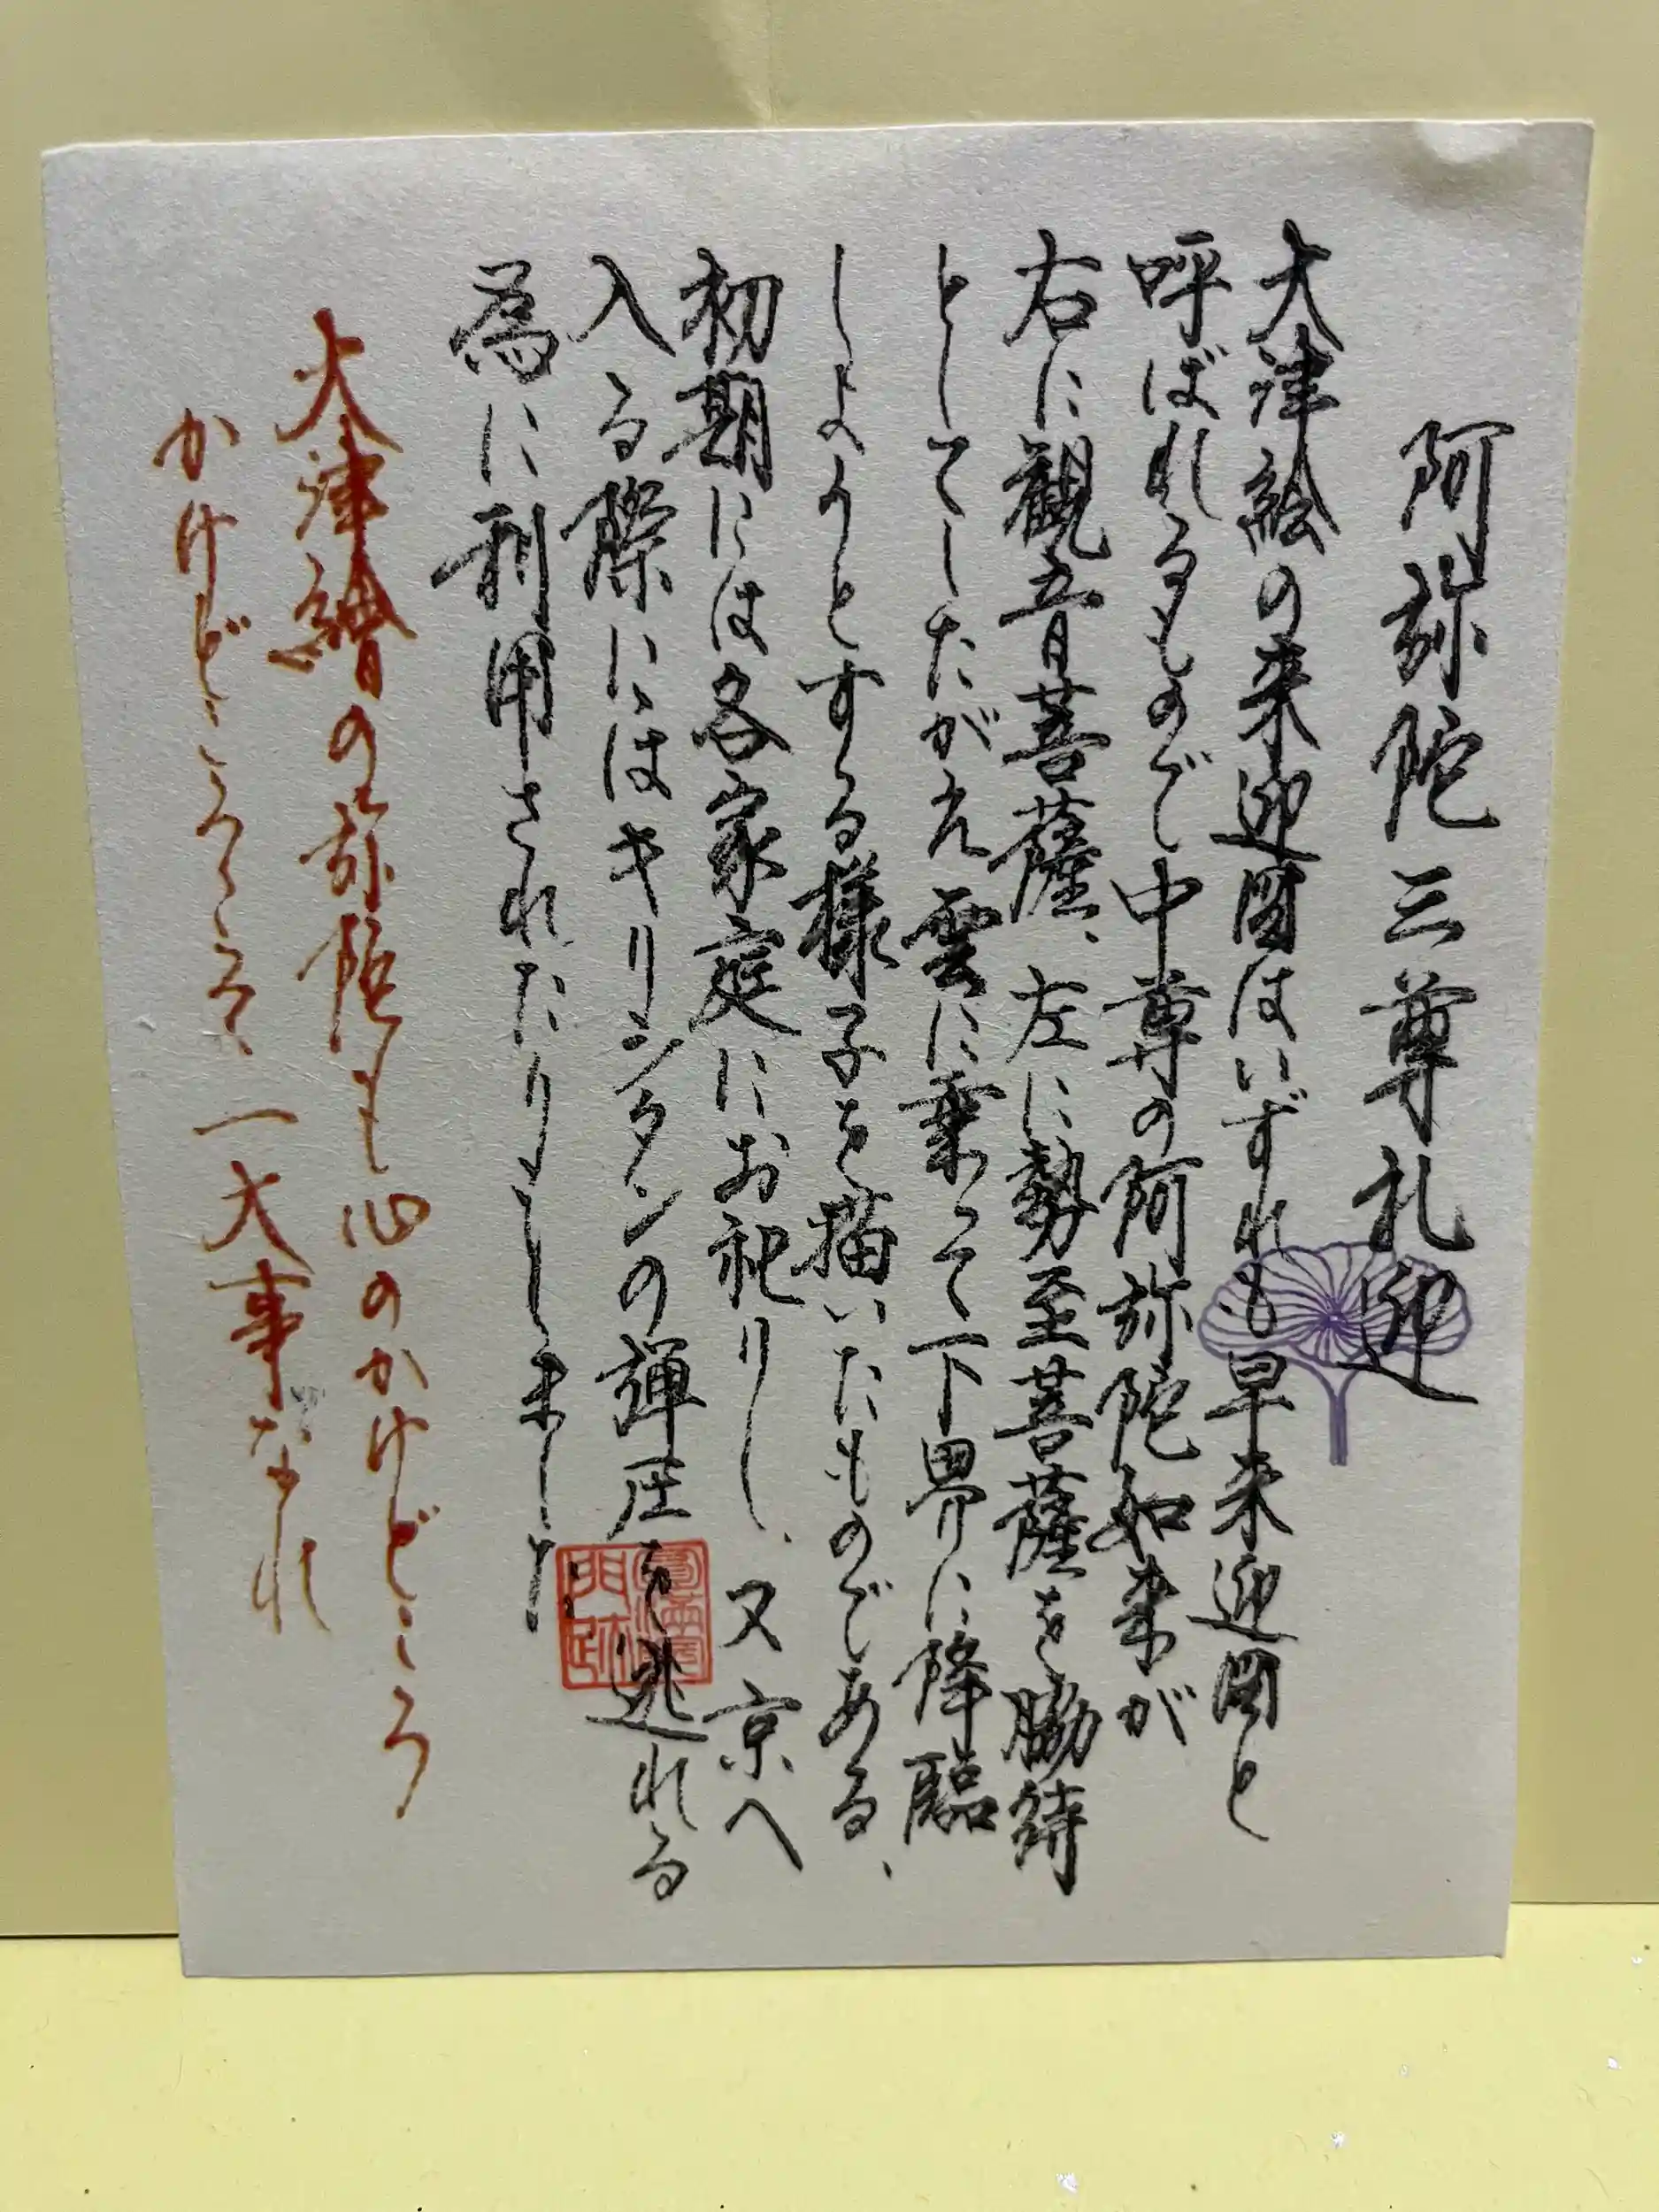 阿弥陀三尊礼迎
大津絵の来迎図はいずれも早来迎図と
呼ばれるもので中尊の阿弥陀如来が
右に観音菩薩、左に勢至菩薩を脇待
としてしたがえ雲に乗って下界に降臨
しようとする様子を描いたものである、
初期には各家庭にお祀りし、又京へ
入る際にはキリシタンの弾圧を逃れる
為に利用されたりしました
大津繪の弥陀も心のかけどころ
かけどころこそ一大事なれ
門跡